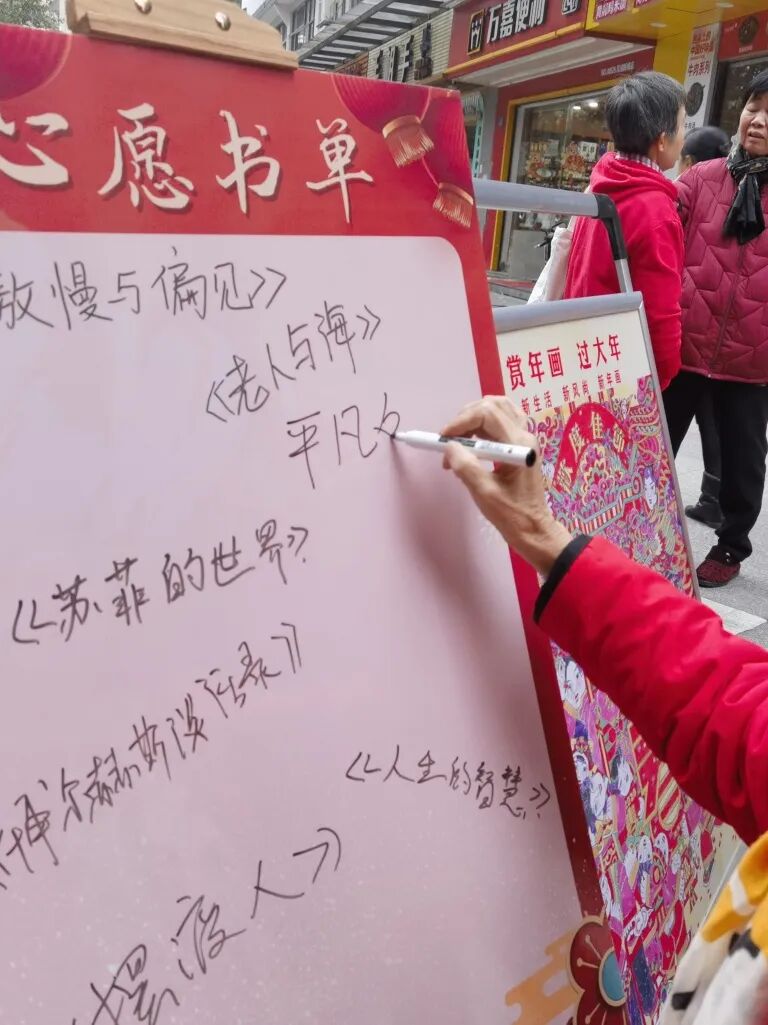 心愿书单
傲慢与偏见》
《老人与海》
平凡
《苏菲的世界》
《博尔赫斯谈话录》
《人生的智慧》
《摆渡人》
万嘉便利
赏年画 过大年
新生活 新风尚 新年画